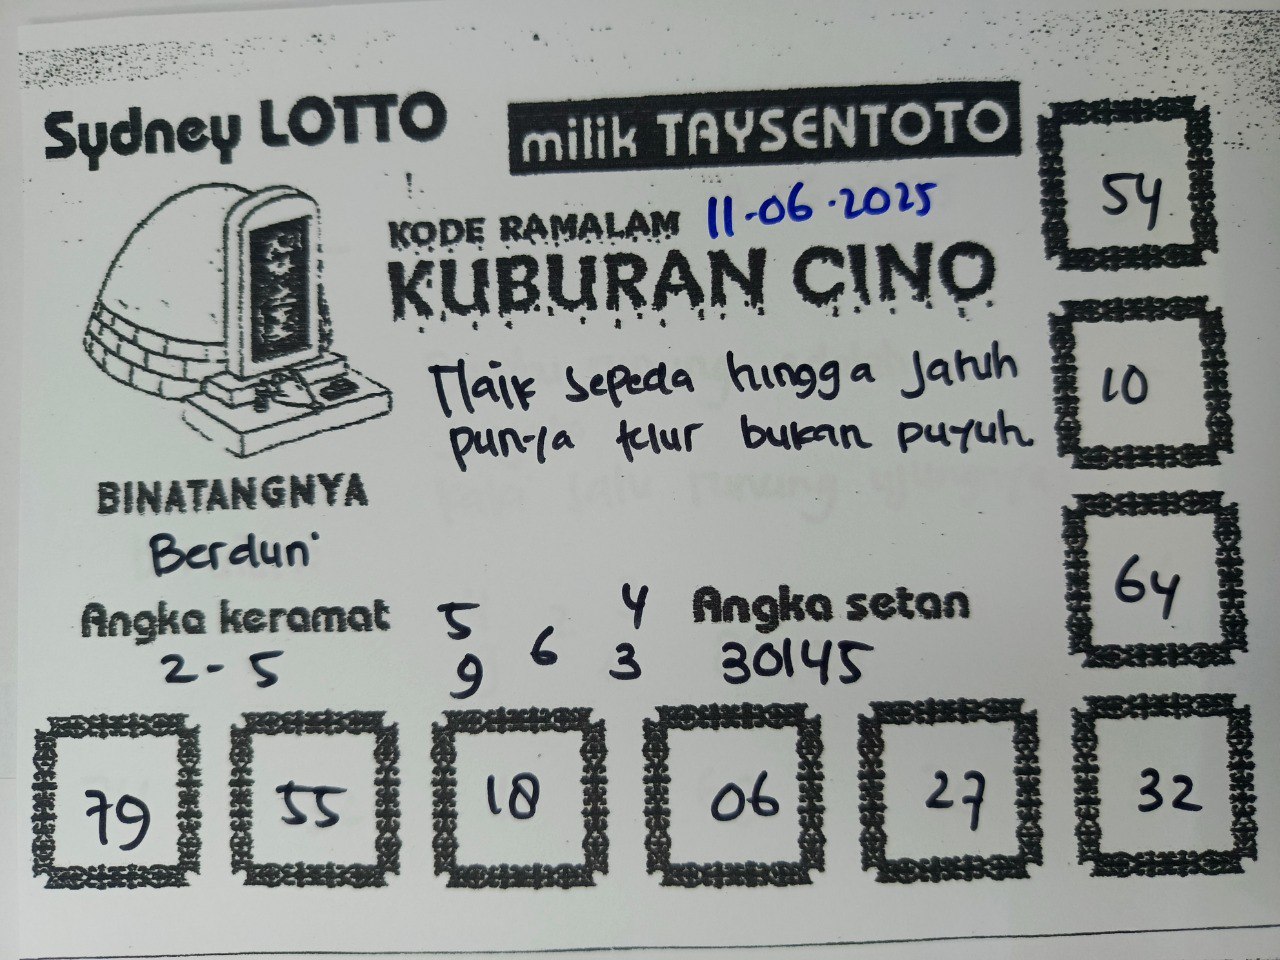 Sydney LOTTO
milik TAYSENTOTO
KODE RAMALAM 11-06-2025
KUBURAN CINO
Naik sepeda hingga jatuh
punya telur bukan puyuh
BINATANGNYA
Berduri
Angka keramat
2-5
5 4
6
9 3
Angka setan
30145
54
10
64
79 55 18 06 27 32